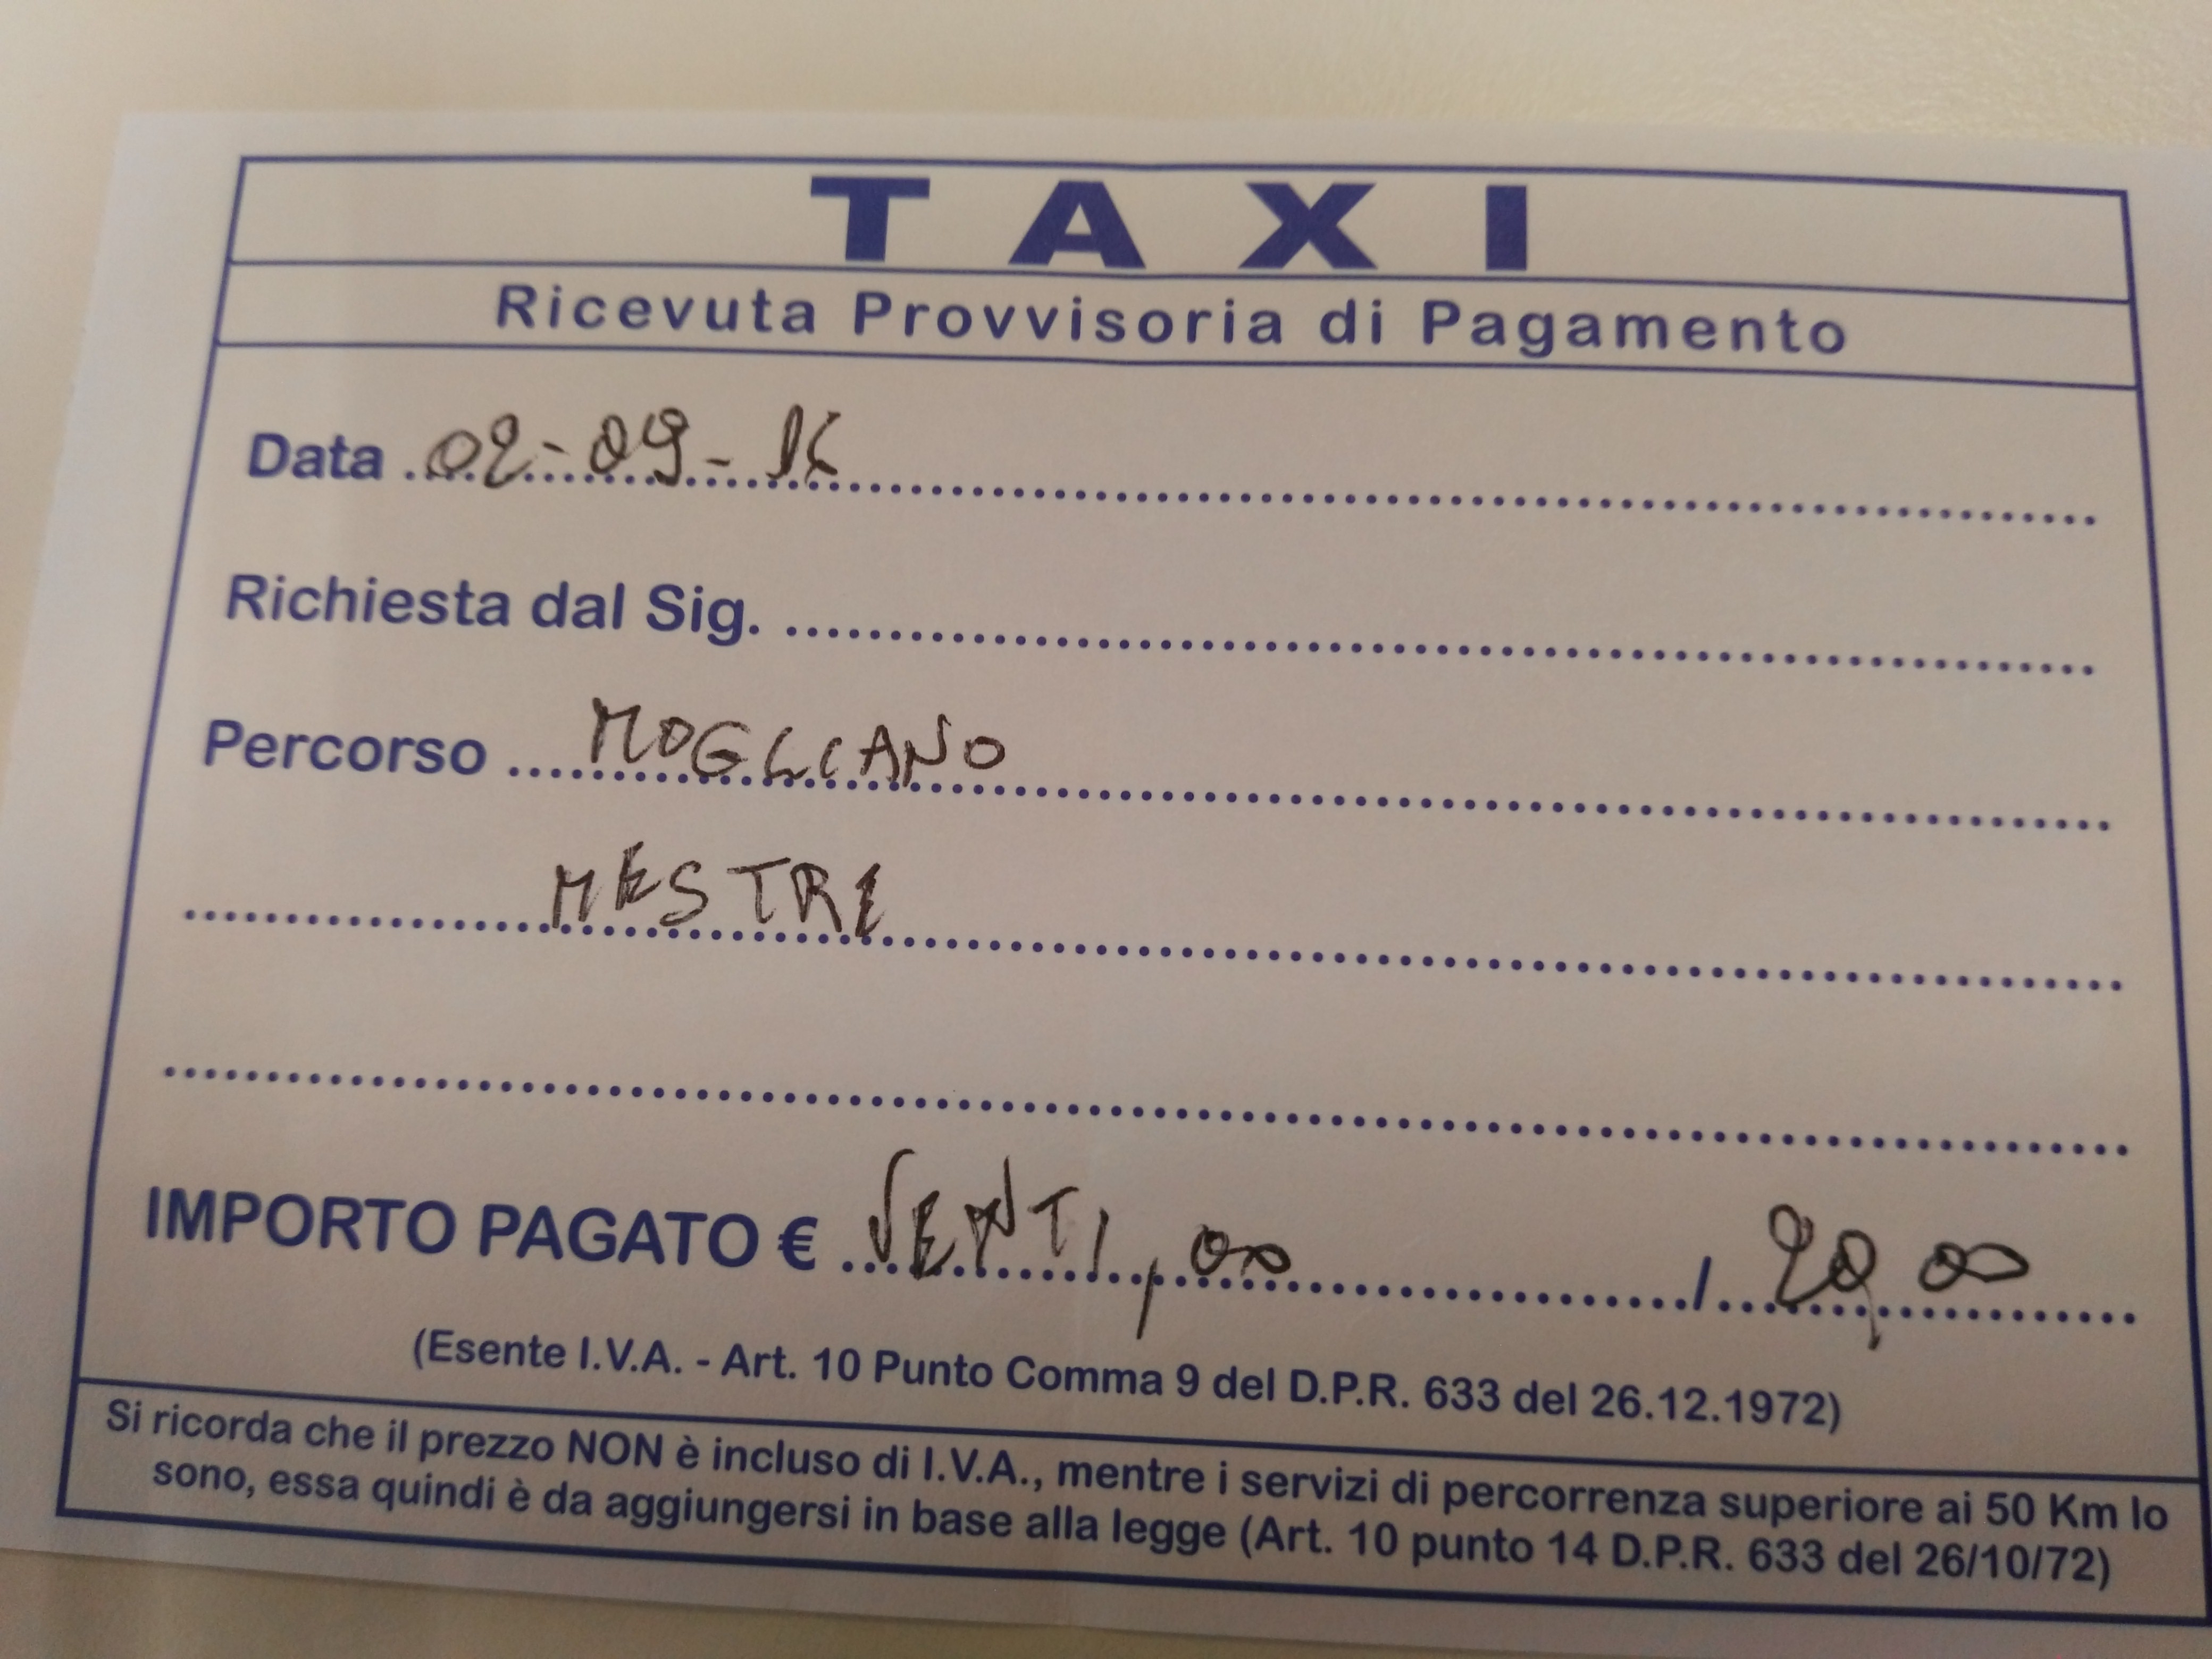 TAXI
Ricevuta Provvisoria di Pagamento
Data 02-09-16
Richiesta dal Sig.
Percorso MOGLIANO
MESTRE
IMPORTO PAGATO € VENTI,00 / 20,00
(Esente I.V.A. - Art. 10 Punto Comma 9 del D.P.R. 633 del 26.12.1972)
Si ricorda che il prezzo NON è incluso di I.V.A., mentre i servizi di percorrenza superiore ai 50 Km lo
sono, essa quindi è da aggiungersi in base alla legge (Art. 10 punto 14 D.P.R. 633 del 26/10/72)